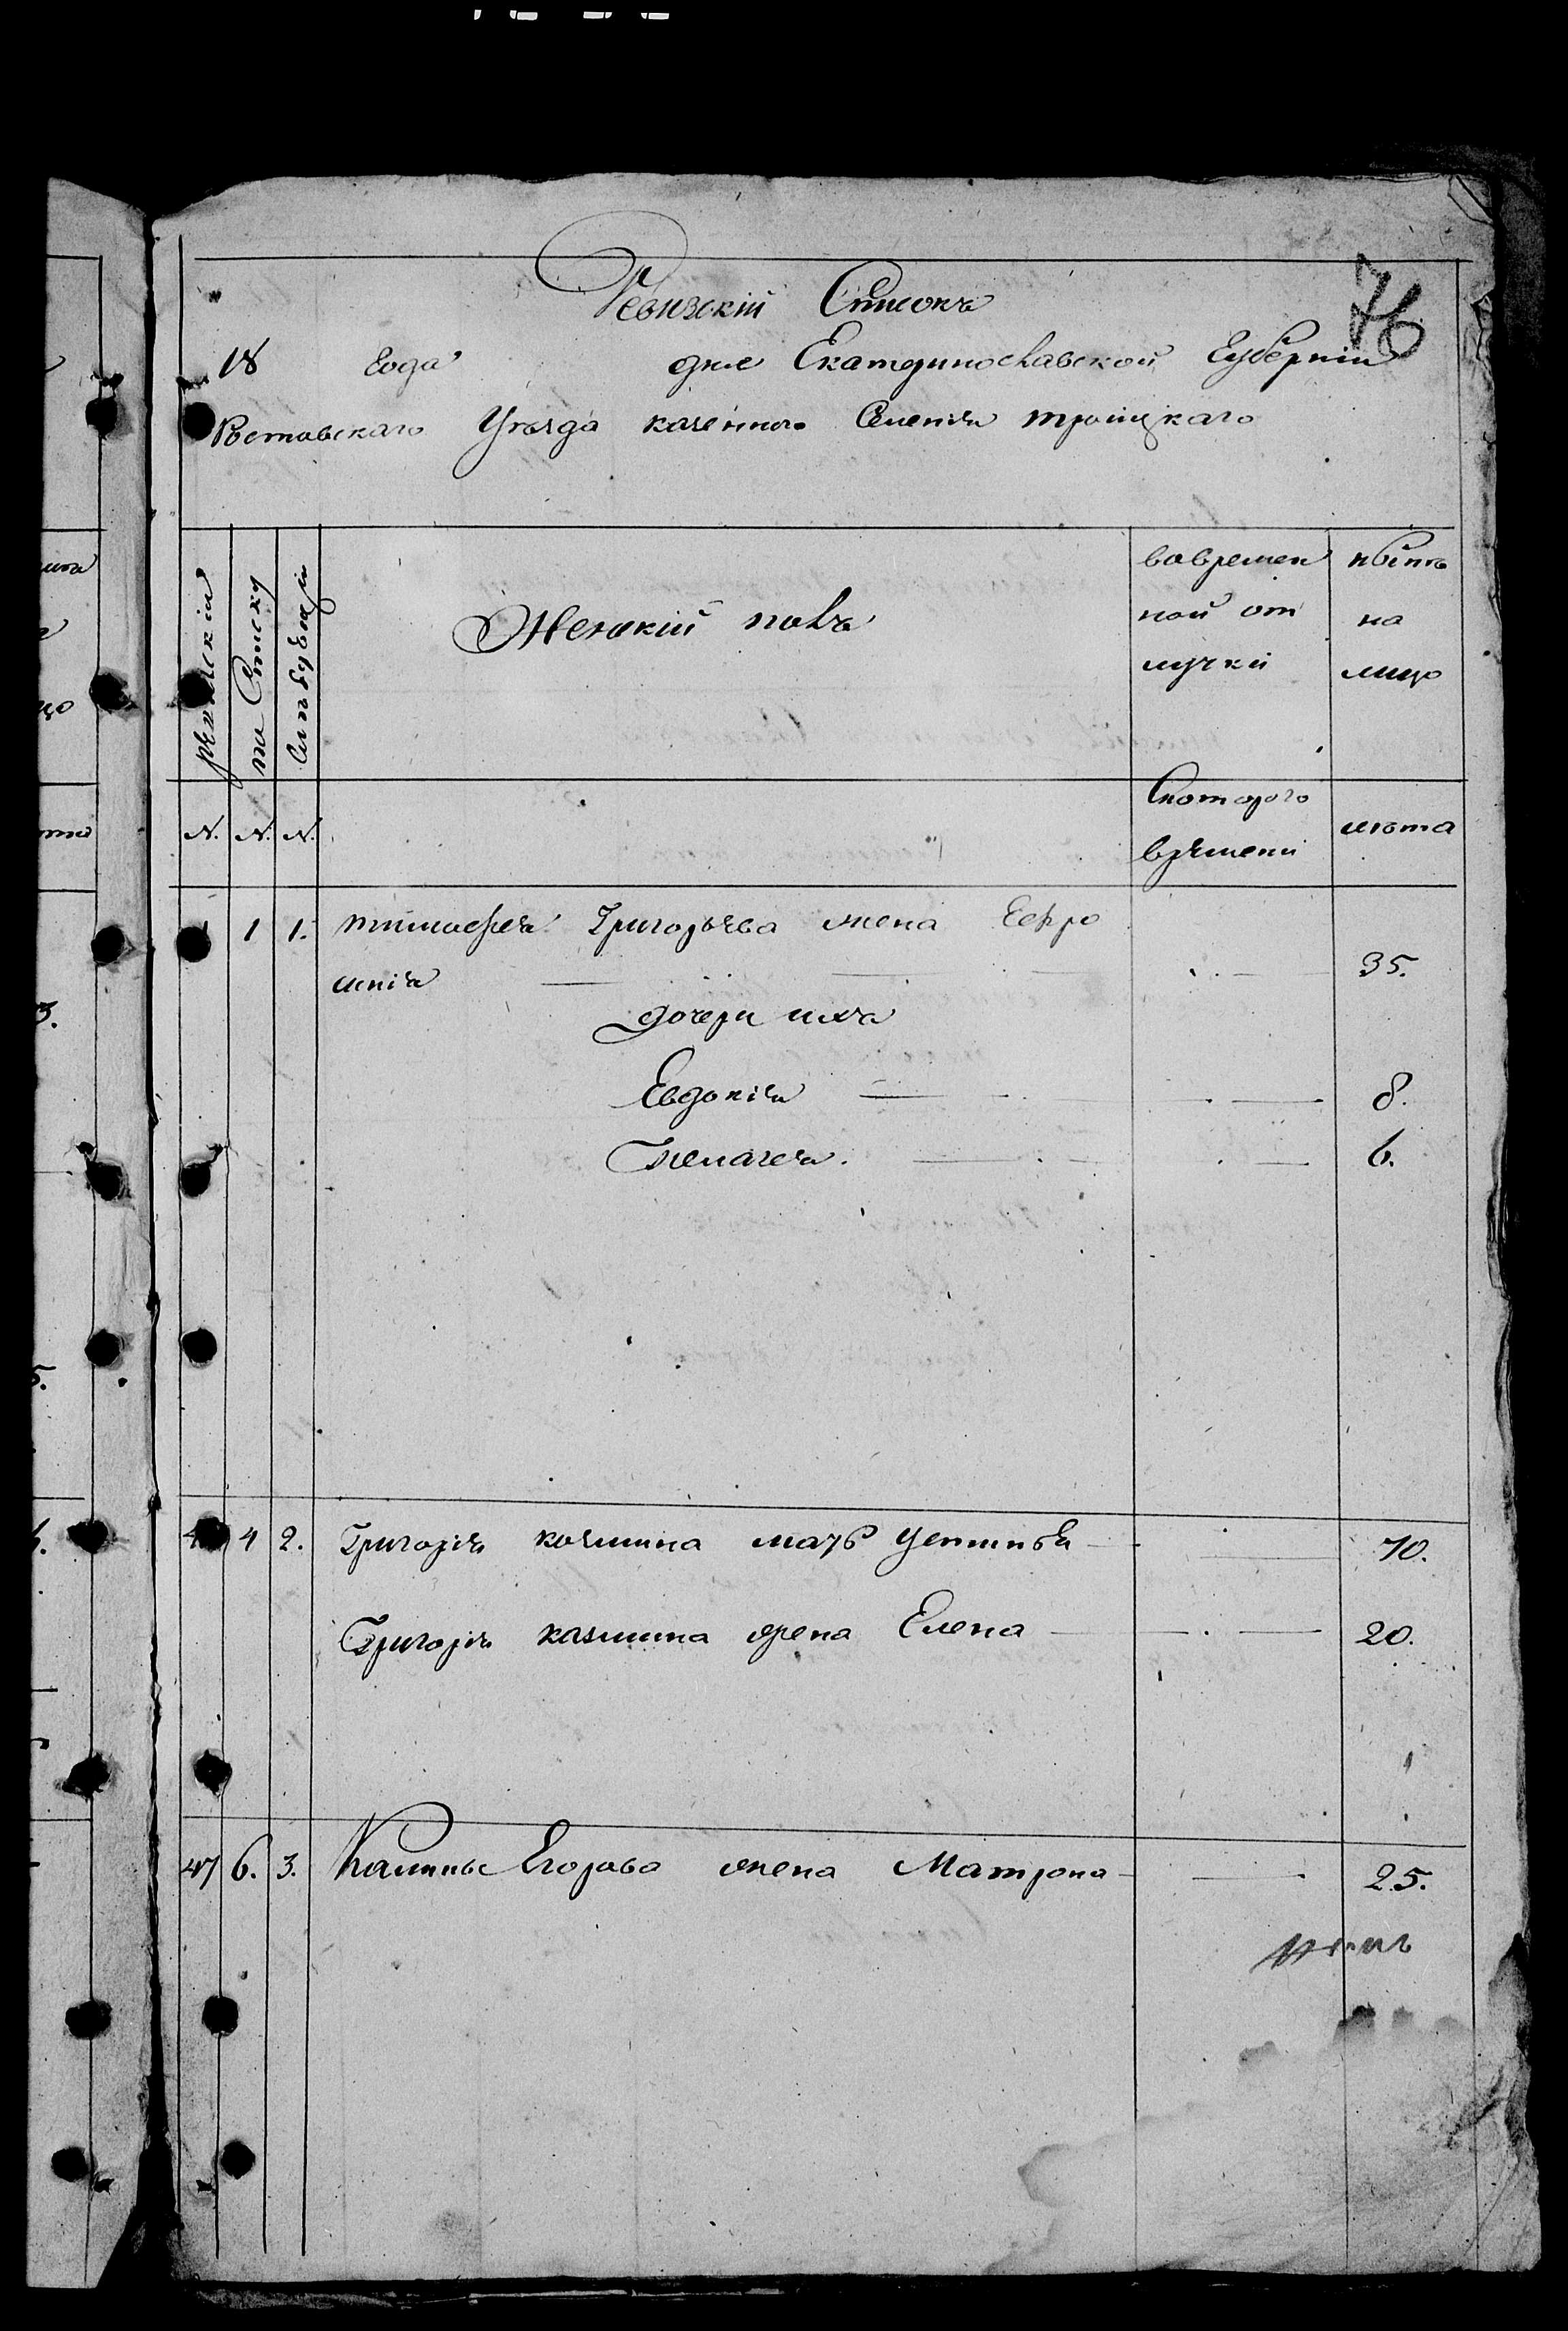 76
Ревизскій Списокъ
18 года дня Екатеринославской Губерніи
Ростовскаго Уѣзда казеннаго Селенія троицкаго
ревизскія
по Списку
Женскій полъ
вовремен
ной от
лучки
нынѣ
на
лицо
N. N. N.
Скоторого
времени
лѣта
1 1. тимофея Григорьева жена Евфро
синія 35.
дочери ихъ
Евдокія 8.
Пелагея. 6.
4 2. Григорія козмина мать Устинья 70.
Григорія казмина жена Елена 20.
47 6. 3. Калины Егорова жена Матрона 25.